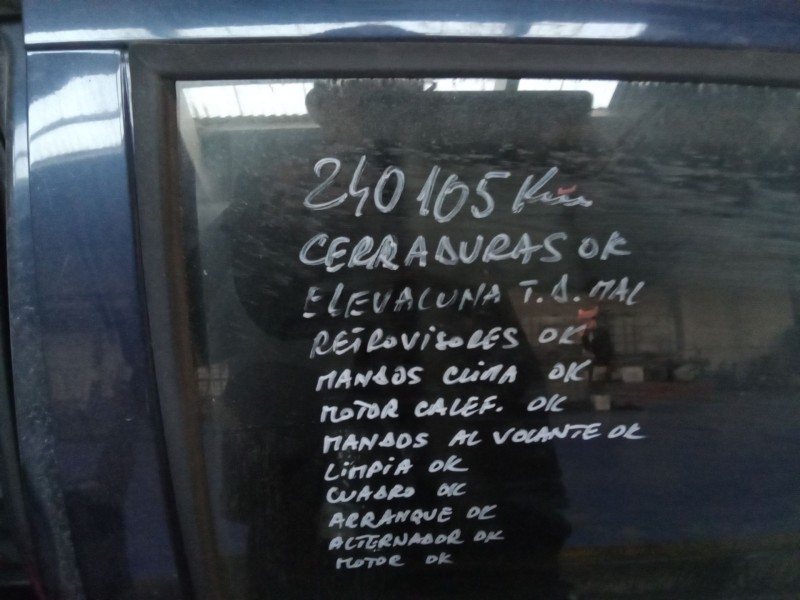 240105 Km
CERRADURAS OK
ELEVALUNA T.D. MAL
RETROVISORES OK
MANDOS CLIMA OK
MOTOR CALEF. OK
MANDOS AL VOLANTE OK
LIMPIA OK
CUADRO OK
ARRANQUE OK
ALTERNADOR OK
MOTOR OK